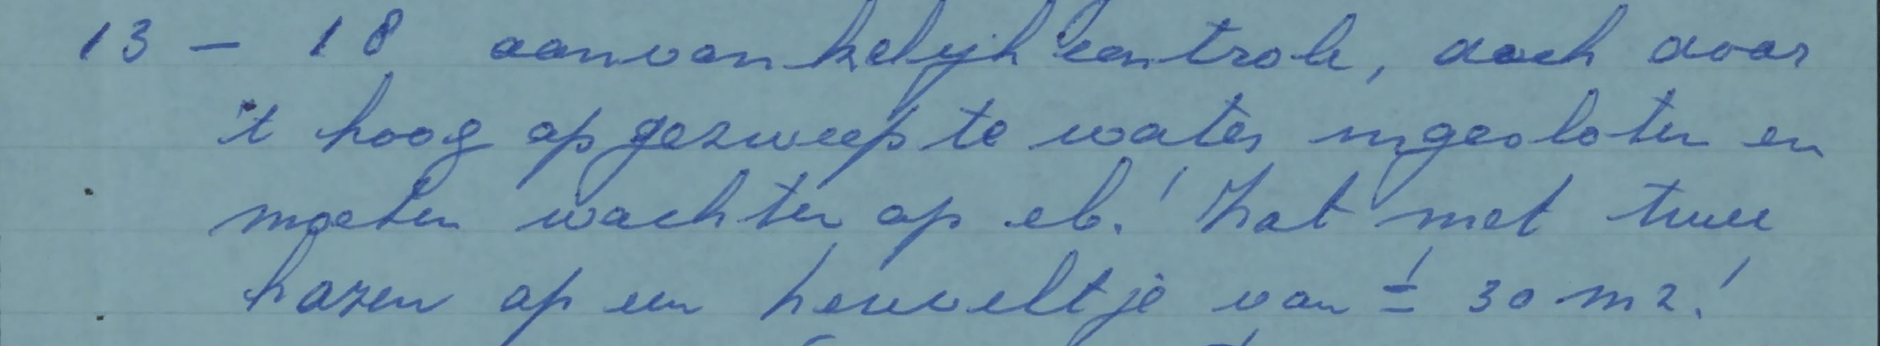 13 - 18 aanvankelijk controle, doch door
't hoog opgezweepte water ingesloten en
moeten wachten op eb.! Zat met twee
hazen op een heuveltje van ± 30 m2.!